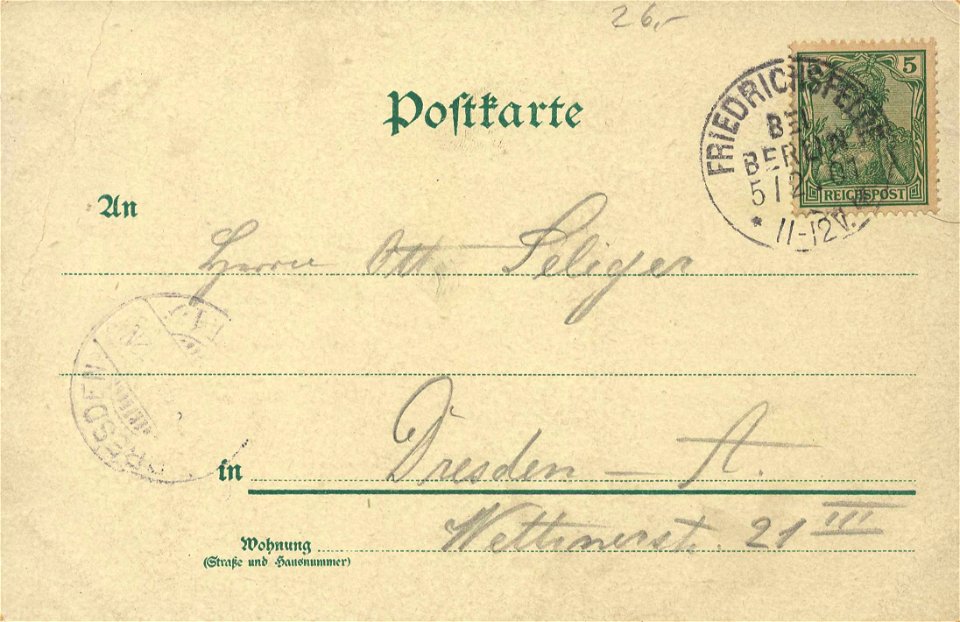 26,-
Postkarte
5
REICHSPOST
FRIEDRICHSFELDE
BEI
BERLIN
5 12 01
* 11-12V.
An
Herrn Otto Seliger
DRESDEN
in Dresden – A.
Wohnung Wettinerstr. 21 III
(Straße und Hausnummer)